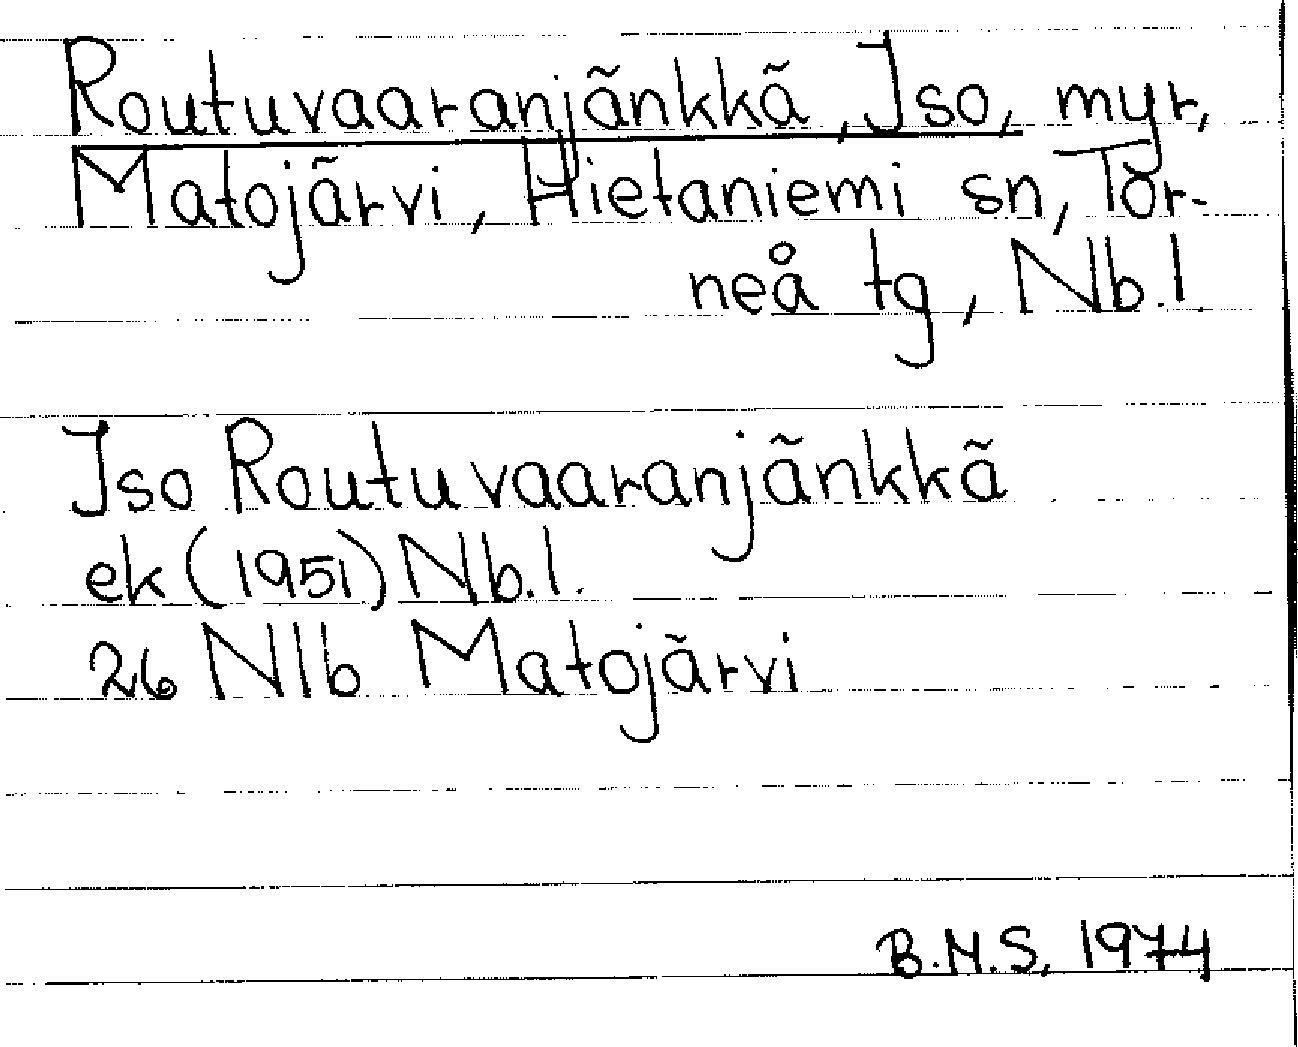 Routuvaaranjänkkä, Iso, myr,
Matojärvi, Hietaniemi sn, Tor-
neå tg, Nb.l.
Iso Routuvaaranjänkkä
ek (1951) Nb.l.
26 Nlb Matojärvi
B.N.S, 1974